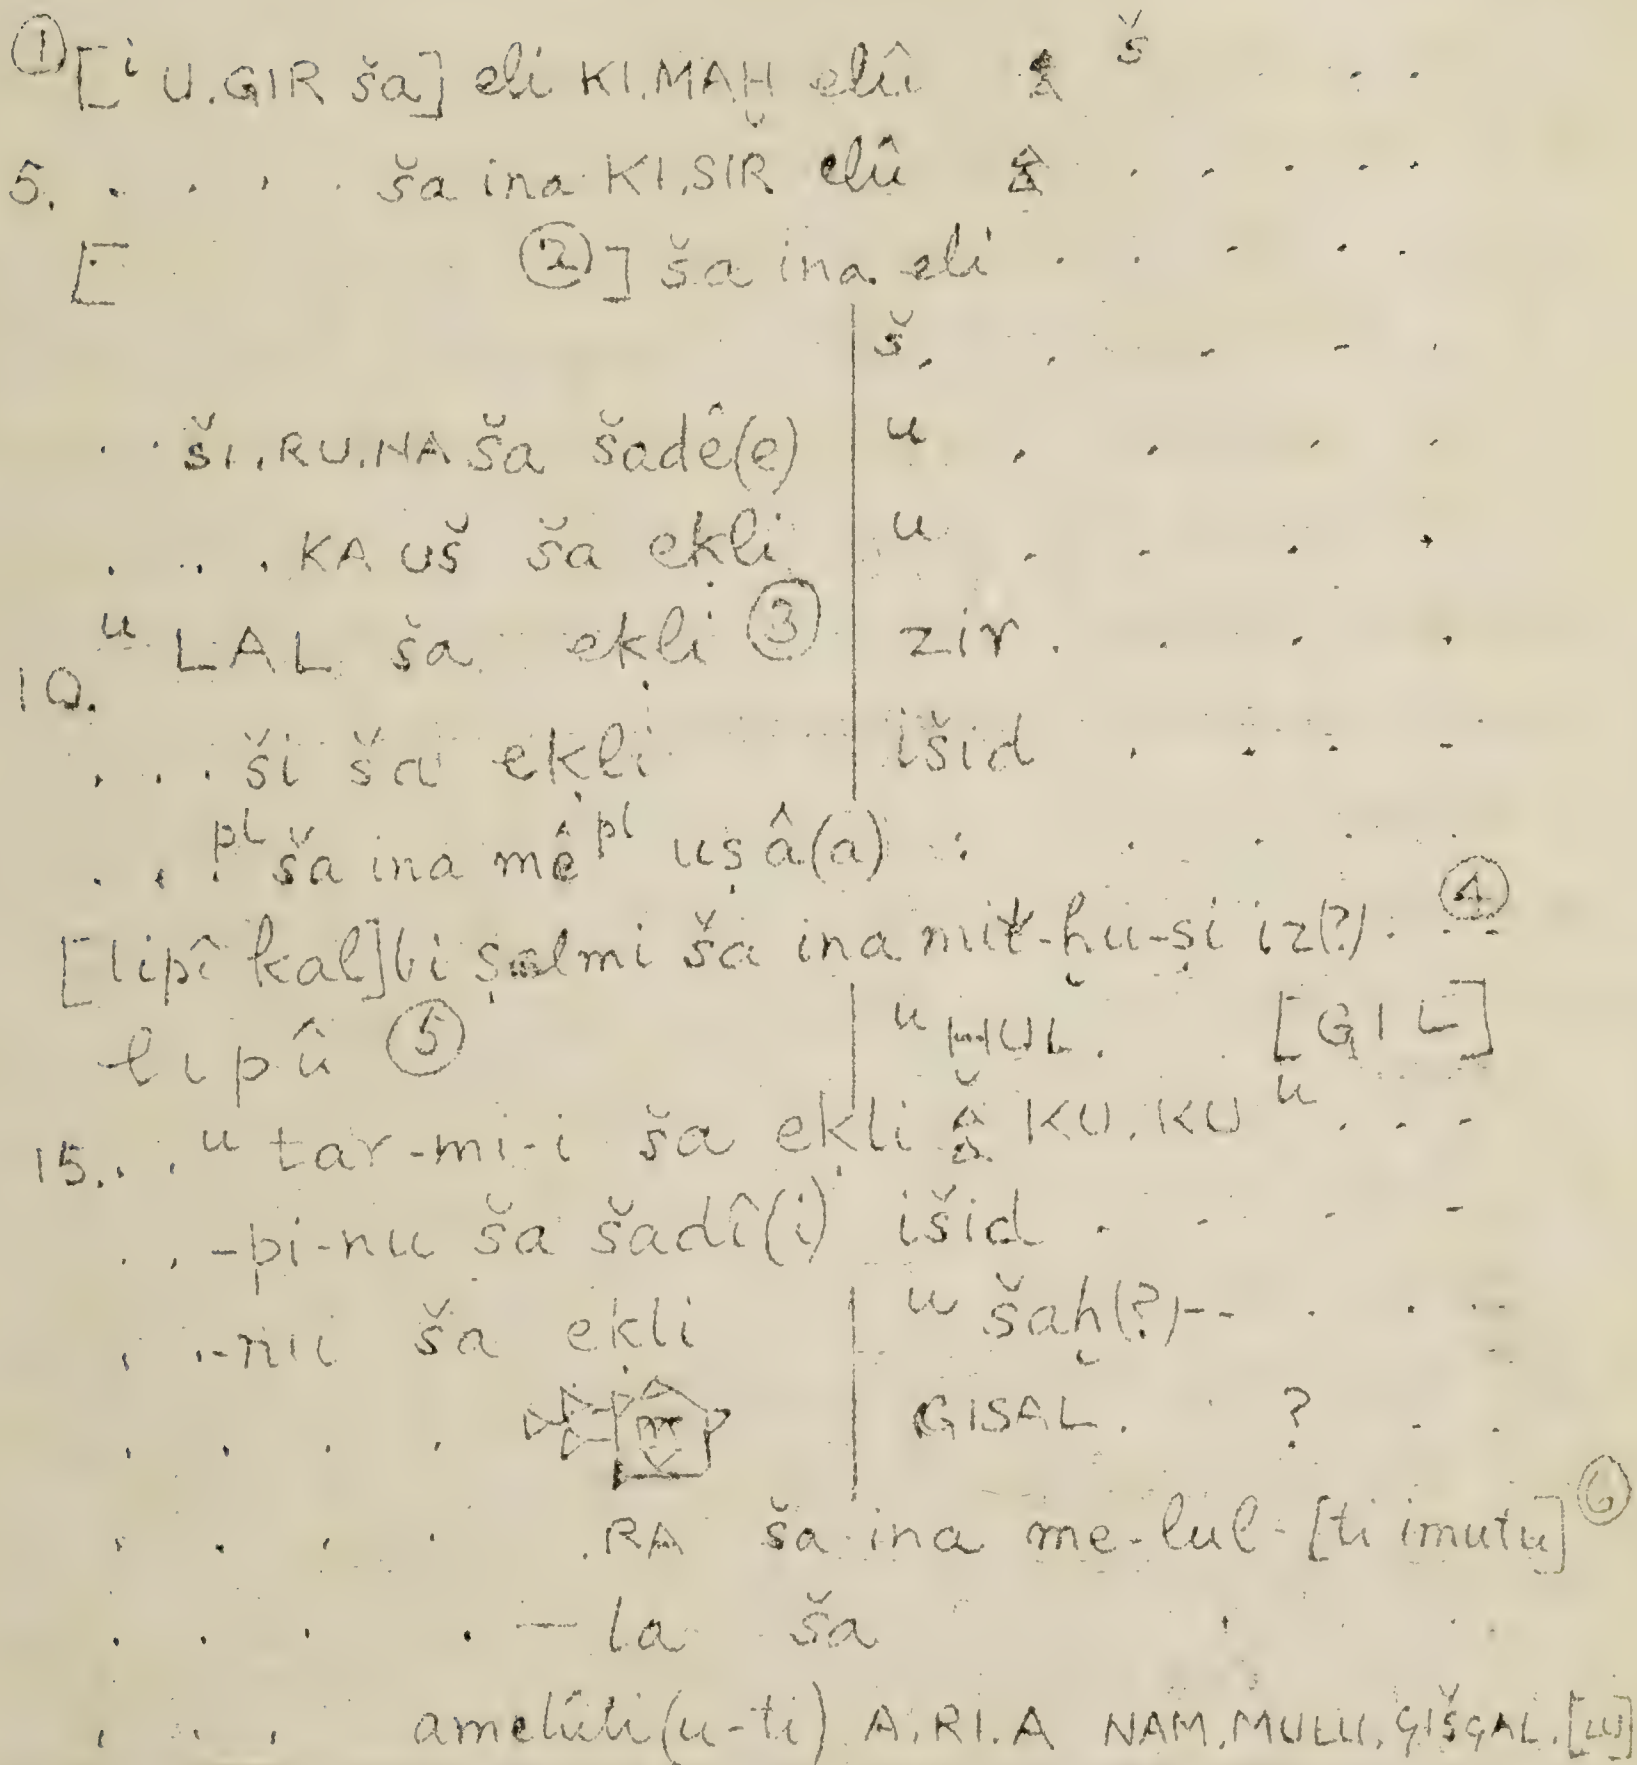 ① [ⁱ U.GIR ša] eli KI.MAḪ elîi š . .
5. . . . . ša ina KI.SIR elû . . . . .
[ ② ] ša ina eli . . . . .
š. . . . .
. . ŠI.RU.NA ša šadê(e) u . . . .
. . . KA UŠ ša eḳli u . . . .
ᵘ LAL ša eḳli ③ zir . . . .
10.
. . . ši ša eḳli išid . . . -
. . . ᵖˡ ša ina mê ᵖˡ uṣâ(a) : . . .
[lipî kal]bi ṣalmi ša ina mit-ḫu-ṣi iz(?) . ④
lipû ⑤ ᵘ ḪUL. . [GIL]
15. . . ᵘ tar-mi-i ša eḳli KU.KU ᵘ . . -
. . -pi-nu ša šadî(i) išid . - - -
. . -nu ša eḳli ᵘ šaḫ(?)-- . . . .
. . . . GISAL. . ? . .
. . . . . RA ša ina me-lul-[ti imutu] ⑥
. . . . — la ša . .
. . . amelûti(u-ti) A.RI.A NAM.MULU.GIŠGAL.[LU]